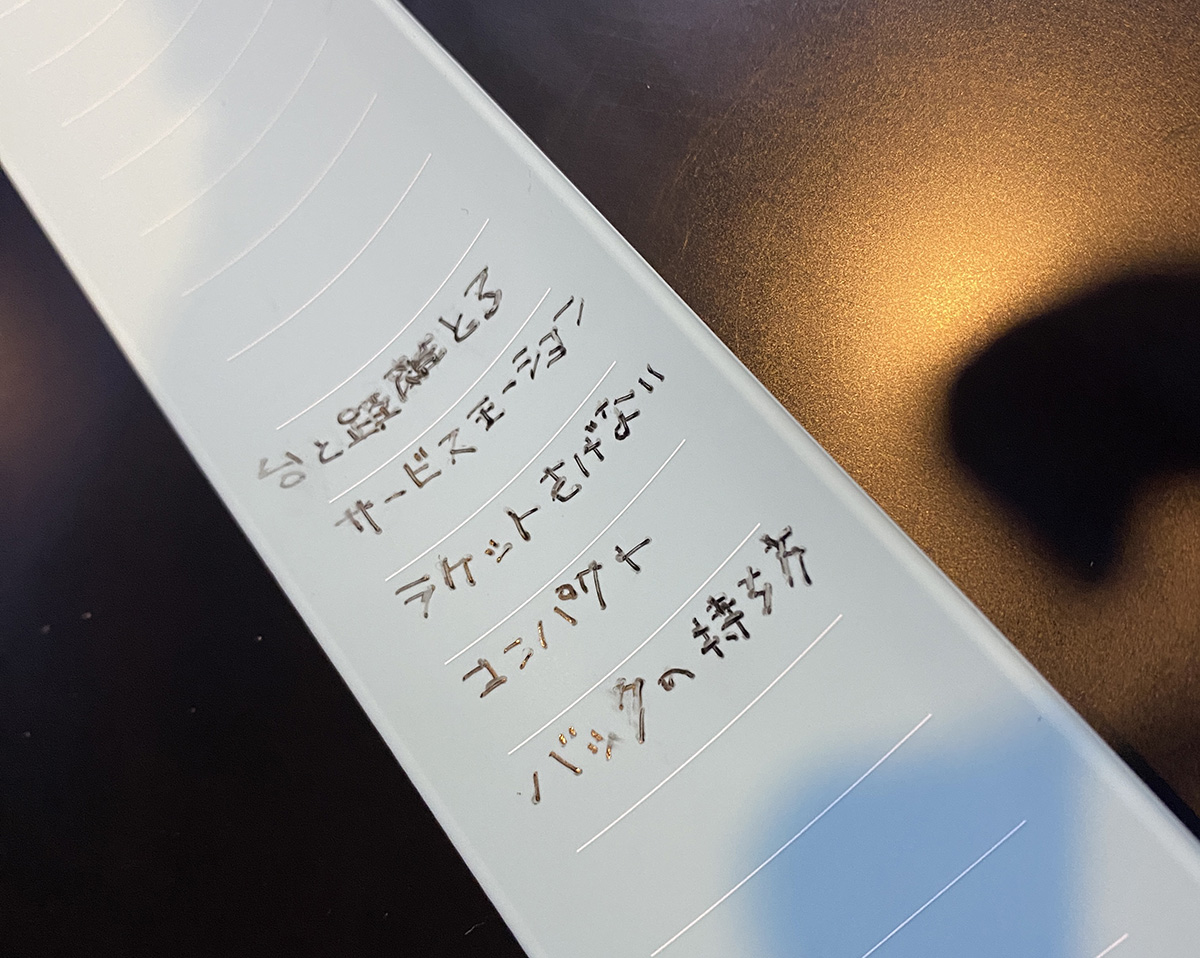 台と距離とる
サービスモーション
ラケットさげない
コンパクト
バックの持ち方